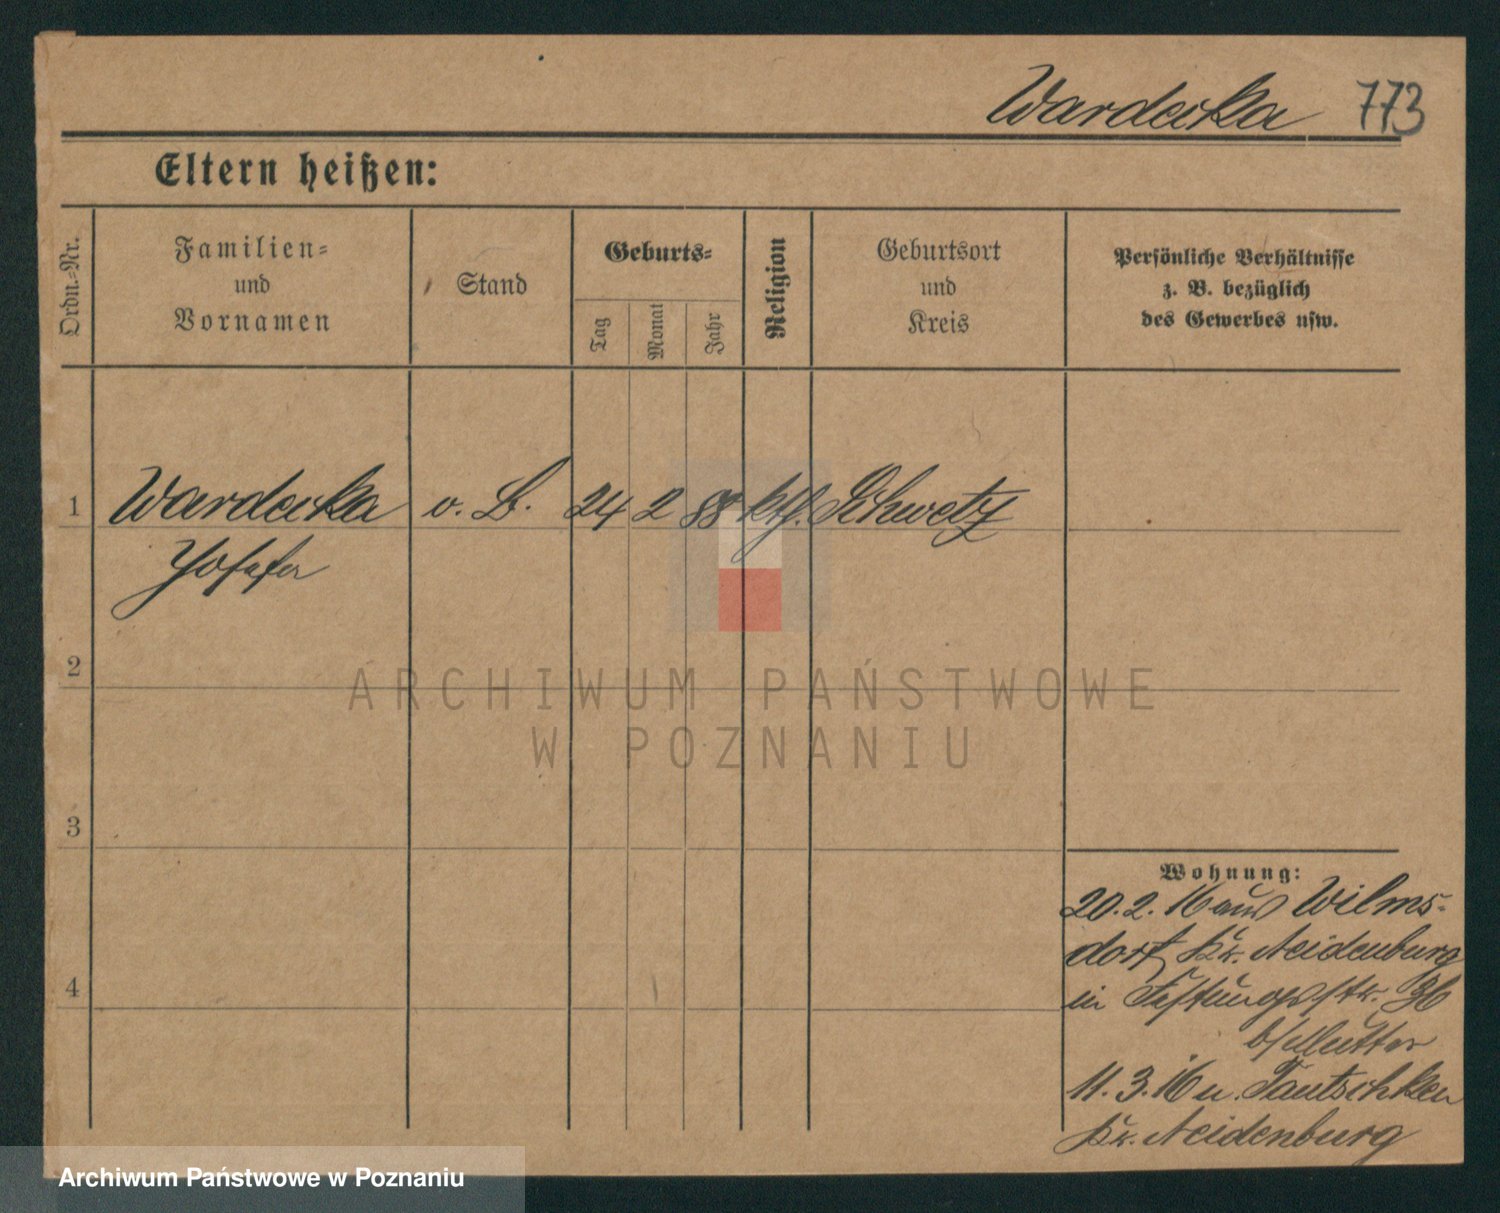 Wardecka 773
Eltern heißen:
Ordn.-Nr.
Familien-
und
Vornamen
Stand
Geburts-
Tag
Monat
Jahr
Religion
Geburtsort
und
Kreis
Persönliche Verhältnisse
z. B. bezüglich
des Gewerbes usw.
1 Wardecka o. B. 24 2 88 kth. Schwetz
Josefa
2
ARCHIWUM PAŃSTWOWE
W POZNANIU
3
Wohnung:
20.2.16 aus Wilms-
dorf Kr. Neidenburg
in Festungsstr. 36
b/Mutter
4
11.3.16 n. Tautschken
Kr. Neidenburg
Archiwum Państwowe w Poznaniu